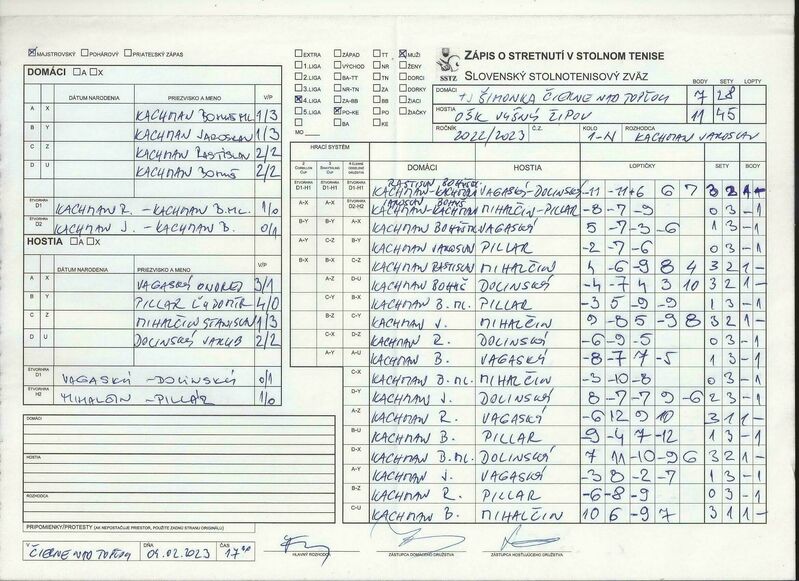 MAJSTROVSKÝ POHÁROVÝ PRIATEĽSKÝ ZÁPAS
EXTRA ZÁPAD TT MUŽI
1. LIGA VÝCHOD NR ŽENY
2. LIGA BA-TT TN DORCI
3. LIGA NR-TN ZA DORKY
4. LIGA ZA-BB BB ŽIACI
5. LIGA PO-KE PO ŽIAČKY
MO BA KE
SSTZ
ZÁPIS O STRETNUTÍ V STOLNOM TENISE
SLOVENSKÝ STOLNOTENISOVÝ ZVÄZ
BODY SETY LOPTY
DOMÁCI TJ ŠIMONKA ČIERNE NAD TOPĽOU 7 28
HOSTIA OŠK VYŠNÝ ŽIPOV 11 45
ROČNÍK 2022/2023 Č.Z. KOLO 1-N ROZHODCA KACHMAN JAROSLAV
DOMÁCI A X
DÁTUM NARODENIA PRIEZVISKO A MENO V/P
A X KACHMAN BOHUŠ ML. 1/3
B Y KACHMAN JAROSLAV 1/3
C Z KACHMAN RASTISLAV 2/2
D U KACHMAN BOHUŠ 2/2
ŠTVORHRA D1 KACHMAN R. - KACHMAN B. ML. 1/0
D2 KACHMAN J. - KACHMAN B. 0/1
HOSTIA A X
DÁTUM NARODENIA PRIEZVISKO A MENO V/P
A X VAGASKÝ ONDREJ 3/1
B Y PILLAR ĽUBOMÍR 4/0
C Z MIHALČIN STANISLAV 1/3
D U DOLINSKÝ JAKUB 2/2
ŠTVORHRA D1 VAGASKÝ - DOLINSKÝ 0/1
ŠTVORHRA H2 MIHALČIN - PILLÁR 1/0
DOMÁCI
HOSTIA
ROZHODCA
PRIPOMIENKY/PROTESTY (AK NEPOSTAČUJE PRIESTOR, POUŽITE ZADNÚ STRANU ORIGINÁLU)
V ČIERNE NAD TOPĽOU DŇA 04.02.2023 ČAS 17
HRACÍ SYSTÉM
DOMÁCI HOSTIA LOPTIČKY SETY BODY
ŠTVORHRA D1-H1 ŠTVORHRA D1-H1 ŠTVORHRA D1-H1 KACHMAN-KACHMAN VAGASKÝ-DOLINSKÝ -11 -11 +6 6 7 3 2 1 -
A-X A-X ŠTVORHRA D2-H2 KACHMAN-KACHMAN MIHALČIN-PILLAR -8 -7 -9 0 3 - 1
B-Y B-Y A-X KACHMAN VAGASKÝ 5 -7 -3 -6 1 3 - 1
A-Y C-Z B-Y KACHMAN JAROSLAV PILLAR -2 -7 -6 0 3 - 1
B-X B-X C-Z KACHMAN RASTISLAV MIHALČIN 4 -6 -9 8 4 3 2 1 -
A-Z D-U KACHMAN BOHUŠ DOLINSKÝ -4 -7 4 3 10 3 2 1 -
C-Y B-X KACHMAN B. ML. PILLAR -3 5 -9 -9 1 3 - 1
B-Z C-Y KACHMAN J. MIHALČIN 9 -8 5 -9 8 3 2 1 -
C-X D-Z KACHMAN R. DOLINSKÝ -6 -9 -5 0 3 - 1
A-Y A-U KACHMAN B. VAGASKÝ -8 -7 7 -5 1 3 - 1
C-X KACHMAN B. ML. MIHALČIN -3 -10 -8 0 3 - 1
D-Y KACHMAN J. DOLINSKÝ 8 -7 -7 9 -6 2 3 - 1
A-Z KACHMAN R. VAGASKÝ -6 12 9 10 3 1 1 -
B-U KACHMAN B. PILLAR -9 -4 7 -12 1 3 - 1
D-X KACHMAN B. ML. DOLINSKÝ 7 11 -10 -9 6 3 2 1 -
A-Y KACHMAN J. VAGASKÝ -3 8 -2 -7 1 3 - 1
B-Z KACHMAN R. PILLAR -6 -8 -9 0 3 - 1
C-U KACHMAN B. MIHALČIN 10 6 -9 7 3 1 1 -
HLAVNÝ ROZHODCA ZÁSTUPCA DOMÁCEHO DRUŽSTVA ZÁSTUPCA HOSŤUJÚCEHO DRUŽSTVA